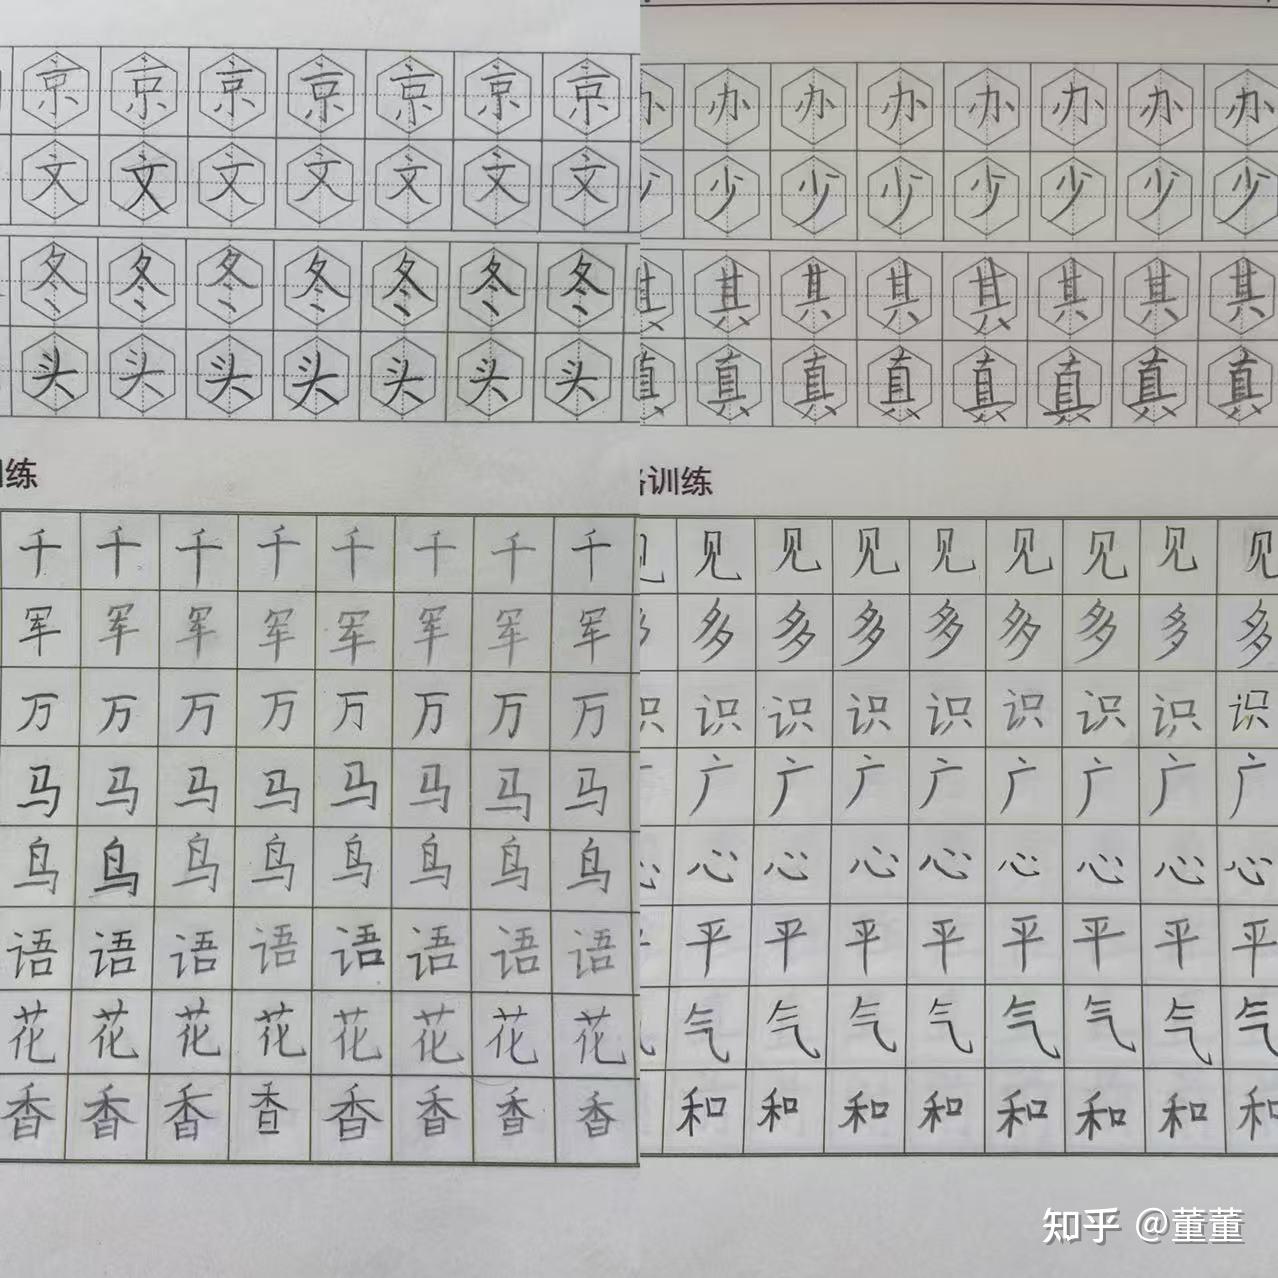 京 京 京 京 京 京 京
文 文 文 文 文 文 文
冬 冬 冬 冬 冬 冬 冬
头 头 头 头 头 头 头
练
千 千 千 千 千 千 千 千
军 军 军 军 军 军 军 军
万 万 万 万 万 万 万 万
马 马 马 马 马 马 马 马
鸟 鸟 鸟 鸟 鸟 鸟 鸟 鸟
语 语 语 语 语 语 语 语
花 花 花 花 花 花 花 花
香 香 香 香 香 香 香 香
办 办 办 办 办 办 办
少 少 少 少 少 少 少
其 其 其 其 其 其 其
真 真 真 真 真 真 真
训练
见 见 见 见 见 见 见 见
多 多 多 多 多 多 多 多
识 识 识 识 识 识 识 识
广 广 广 广 广 广 广 广
心 心 心 心 心 心 心 心
平 平 平 平 平 平 平 平
气 气 气 气 气 气 气 气
和 和 和 和 和 和 和 和
知乎 @董董